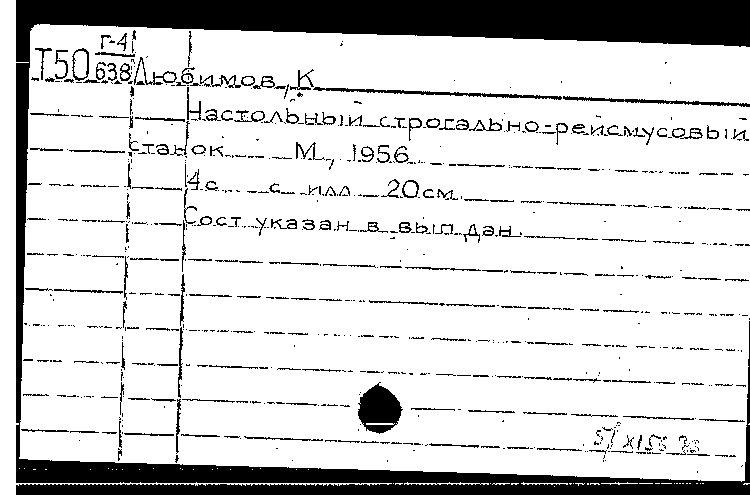 Г-4
Т50 638 Любимов, К.
Настольный строгально-рейсмусовый
станок М., 1956
4с. с илл 20см.
Сост указан в вып. дан.
5/XI56